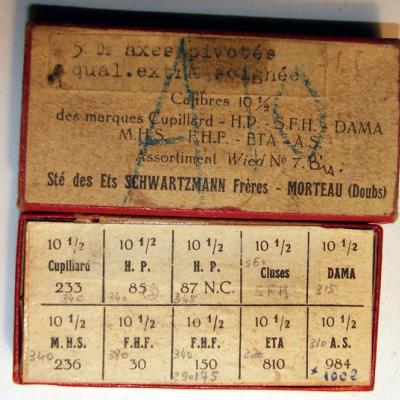 5 Dz axes pivotés
qual.extra soignée
Calibres 10 ½
des marques Cupillard - H.P. - S.F.H. - DAMA
M.H.S. - F.H.F. - ETA - A.S.
Assortiment Wied N° 7.
Sté des Ets SCHWARTZMANN Frères - MORTEAU (Doubs)
10 1/2 10 1/2 10 1/2 10 1/2 10 1/2
Cupillard H. P. H. P. Cluses DAMA
233 85 87 N.C. SFH 315
340 340 345
10 1/2 10 1/2 10 1/2 10 1/2 310 10 1/2
M. H. S. F. H. F. F. H. F. ETA A. S.
340 340 340
236 30 150 810 984
290 175 1002